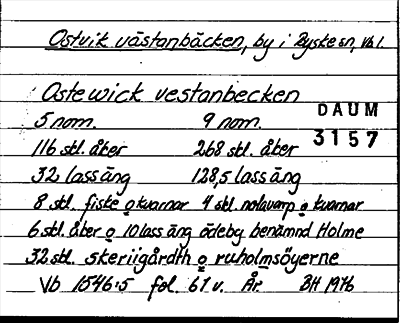 Ostvik västanbäcken, by i Byske sn, Vb l.
Ostewick vestanbecken
DAUM
3157
5 nom. 9 nom.
116 skl. åker 268 skl. åker
32 lass äng 128,5 lass äng
8 skl. fiske o kvarnar 4 skl. notavarp o kvarnar
6 skl. åker o 10 lass äng ödeby benämnd Holme
32 skl. skeriigårdth o ruholmsöyerne
Vb 1546:5 fol. 61 v. År. BH 1976